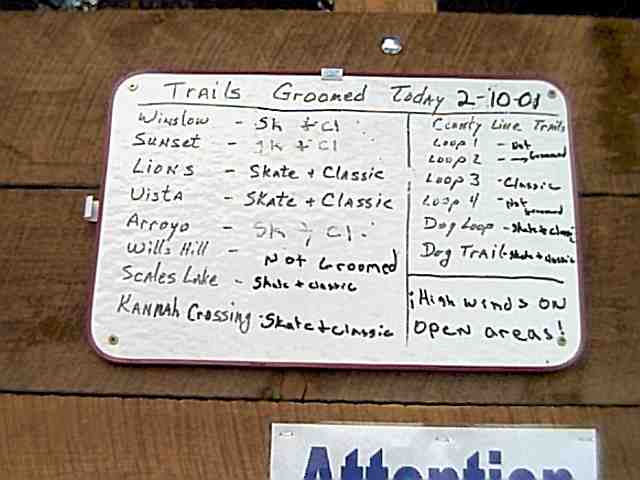 Trails Groomed Today 2-10-01
Winslow - Sk + Cl
Sunset - Sk + Cl
Lions - Skate + Classic
Vista - Skate + Classic
Arroyo - Sk + Cl
Wills Hill - Not Groomed
Scales Lake - Skate + Classic
Kannah Crossing - Skate + Classic
County Line Trails
Loop 1 - Not
Loop 2 - → Groomed
Loop 3 - Classic
Loop 4 - Not Groomed
Dog Loop - Skate + Classic
Dog Trail - Skate + Classic
¡High winds on
open areas!
Attention